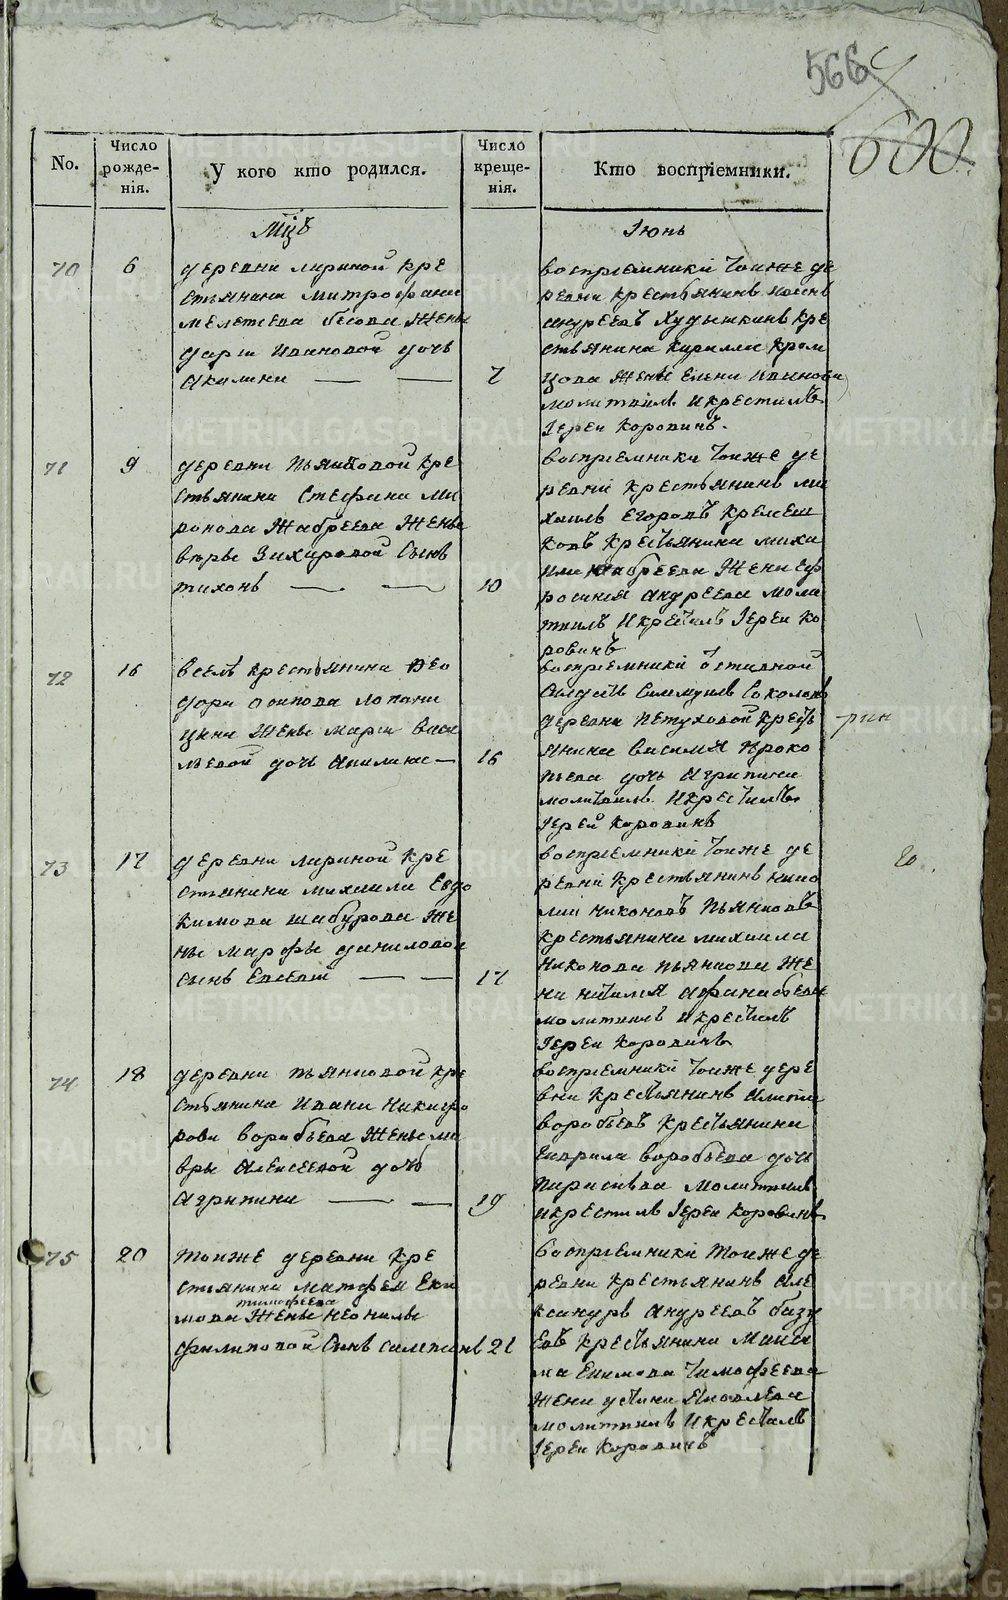 566
600
No.
Число рожденія.
У кого кто родился.
Число крещенія.
Кто воспріемники.
Мцъ
Іюнь
70
6
деревни лариной кре
стьянина митрофана
мелетиева бесова жены
дарьи ивановой дочь
акилина
7
воспріемники тоиже де
ревни крестьянинъ
андреевъ худышкинъ кре
стьянина кирилла
жены елены иванова
молитвилъ и крестилъ
Іереи Коровинъ
71
9
деревни пьянковой кре
стьянина стефана ми
ронова жабреева жены
вѣры захаровой сынъ
тихонъ
10
воспріемники тоиже де
ревни крестьянинъ ми
хаилъ егоровъ
крестьянина миха
ила жабреева жена еф
росинья андреева моли
твилъ и крестилъ Іереи ко
ровинъ
72
16
в селѣ крестьянина фео
дора осипова лопати
цина жены марьи васи
льевой дочь акилина
16
воспріемники отставной
самуилъ соколовъ
деревни петуховой кресть
янина василья проко
пьева дочь агрипина
молитвилъ и крестилъ
Іереи Коровинъ
73
17
деревни лариной кре
стьянина михаила евдо
кимова шабурова же
ны марфы даниловой
сынъ евсевий
17
воспріемники тоиже де
ревни крестьянинъ нико
лаи никоновъ пьянковъ
крестьянина михаила
никонова пьянкова же
на наталья афанасьева
молитвилъ и крестилъ
Іереи Коровинъ
74
18
деревни пьянковой кре
стьянина ивана никифо
рова воробьева жены ма
вры алексеевой дочь
агрипина
19
воспріемники тоиже дере
вни крестьянинъ
воробьевъ крестьянина
гаврила воробьева дочь
параскева молитвилъ
и крестилъ Іереи Коровинъ
75
20
тоиже деревни кре
стьянина матфея еки
тимофеева
мова жены неонилы
филиповой сынъ сампсонъ
21
воспріемники тоиже де
ревни крестьянинъ але
ксандръ андреевъ базу
евъ крестьянина макси
ма екимова тимофеева
жена устина яковлева
молитвилъ и крестилъ
Іереи Коровинъ
METRIKI.GASO-URAL.RU